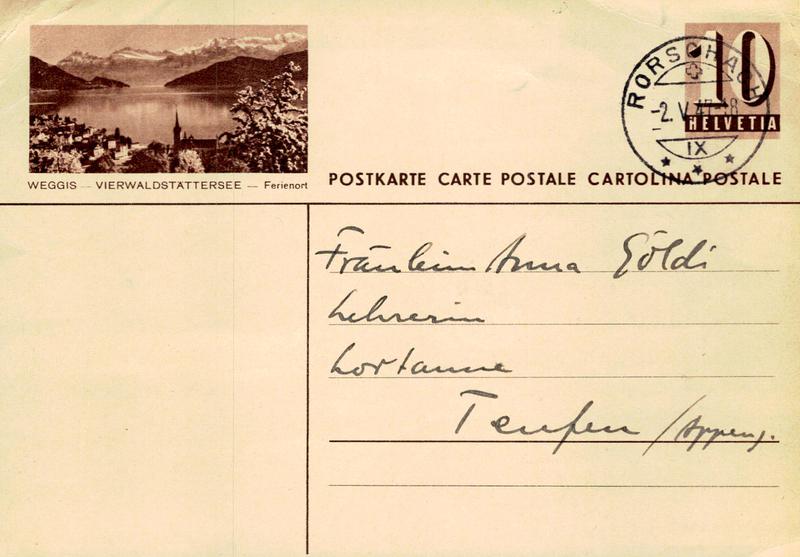 WEGGIS — VIERWALDSTÄTTERSEE — Ferienort
10
HELVETIA
RORSCHACH
-2.V.47-18
IX
POSTKARTE CARTE POSTALE CARTOLINA POSTALE
Fräulein Anna Göldi
Lehrerin
Lortanne
Teufen / Appenz.